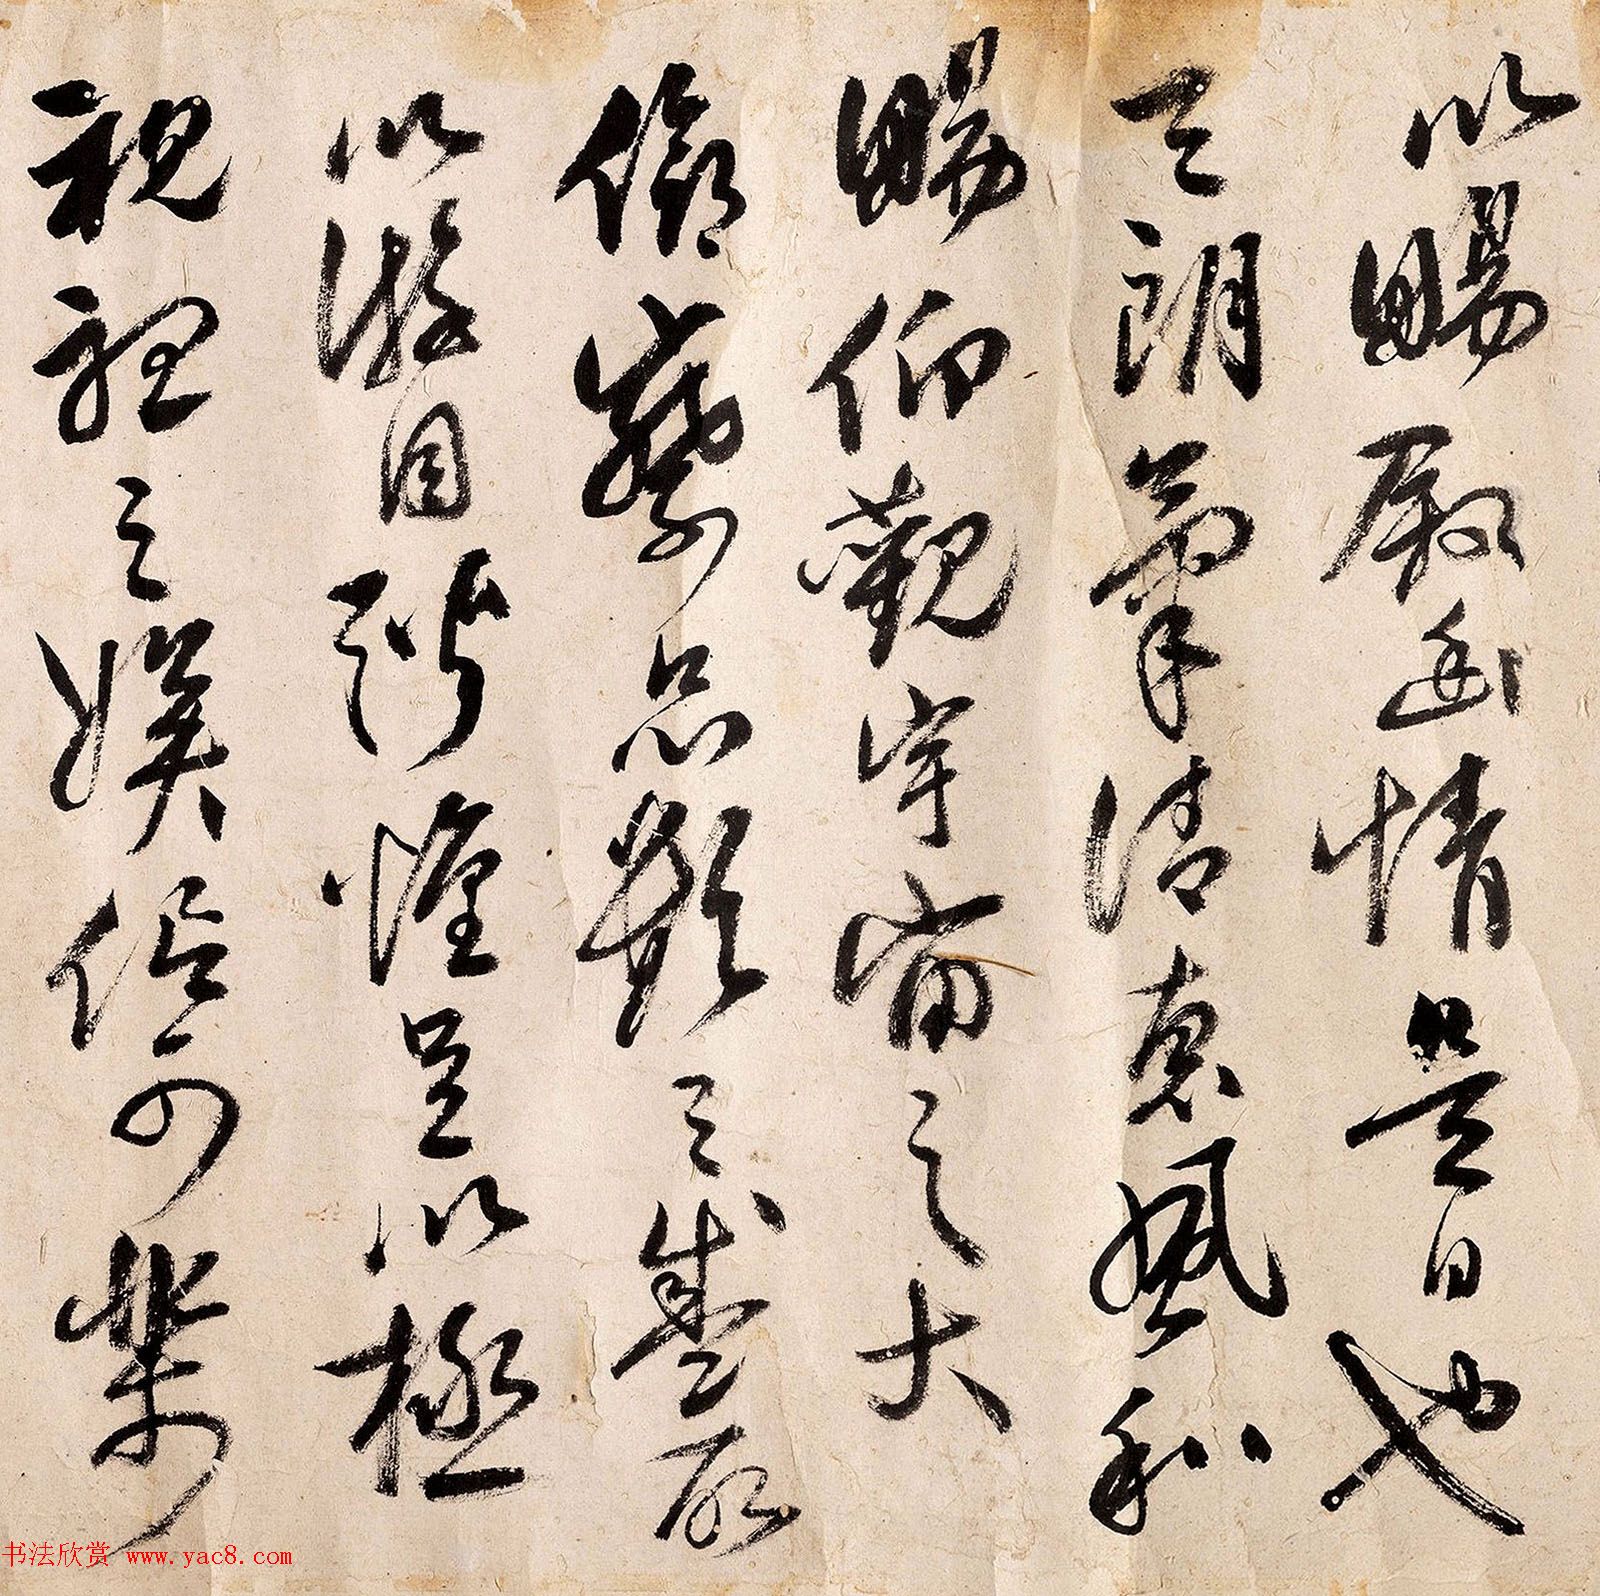 以暢敘幽情是日也
天朗氣清惠風和
暢仰觀宇宙之大
俯察品類之盛所
以游目騁懷足以極
視聽之娛信可樂
书法欣赏 www.yac8.com